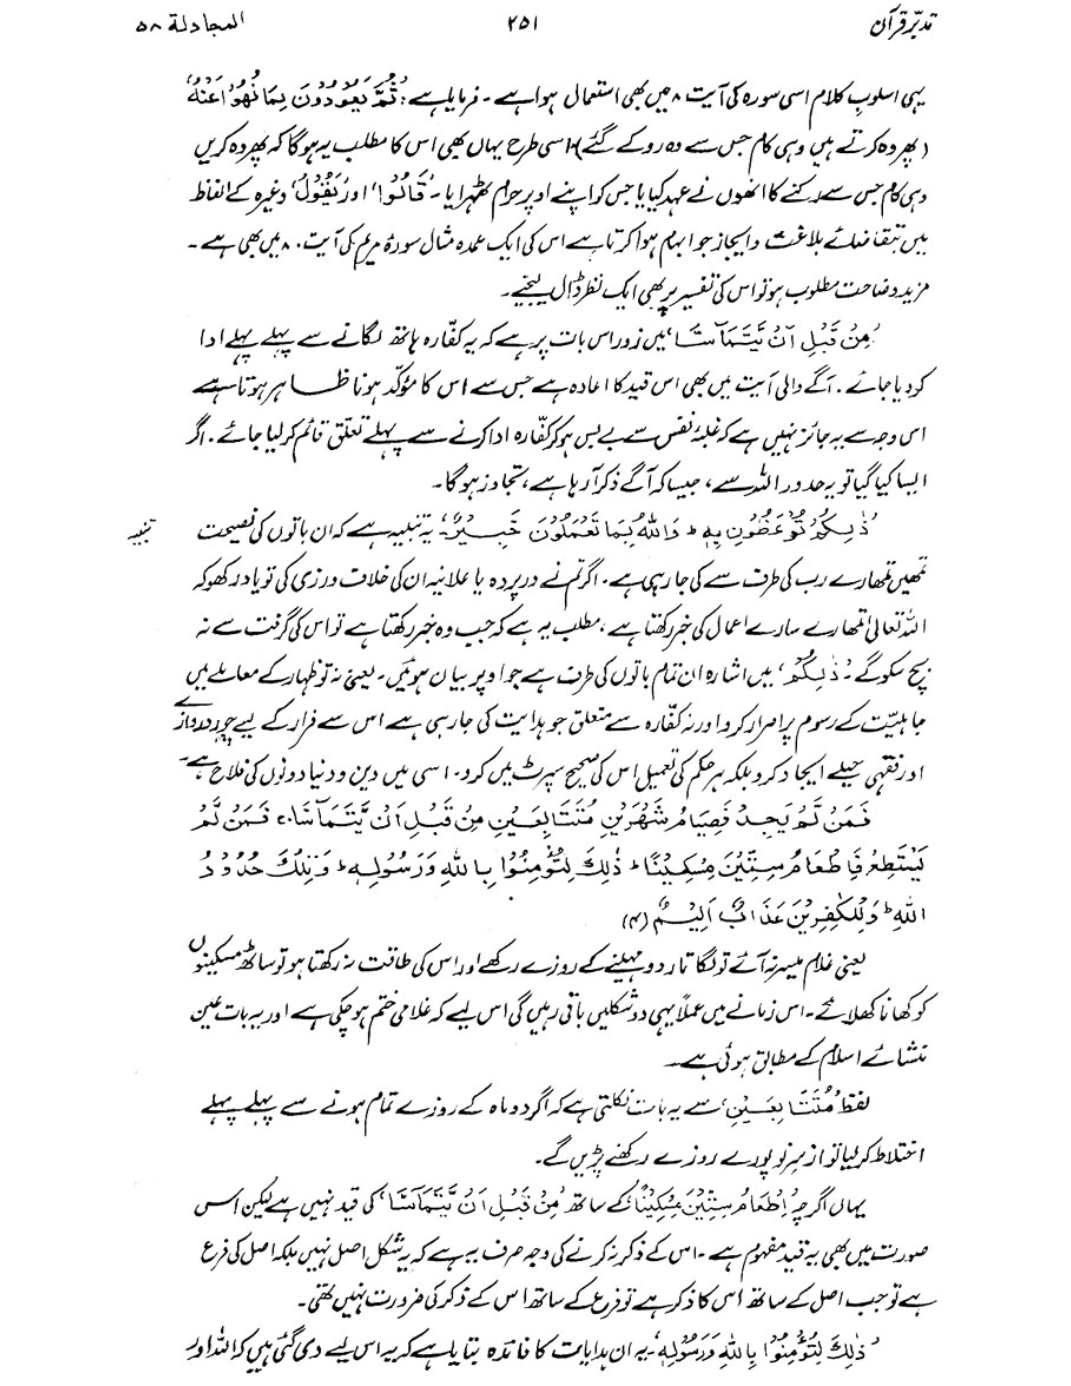 تدبّرِ قرآن ۲۵۱ المجادلة ۵۸
یہی اسلوبِ کلام اسی سورہ کی آیت ۸ میں بھی استعمال ہوا ہے۔ فرمایا ہے: ثُمَّ یَعُوْدُوْنَ لِمَا نُھُوْا عَنْهُ
(پھر وہ کرتے ہیں وہی کام جس سے وہ روکے گئے) اسی طرح یہاں بھی اس کا مطلب یہ ہوگا کہ پھر وہ کریں
وہی کام جس سے رکنے کا انھوں نے عہد کیا یا جس کو اپنے اوپر حرام ٹھہرایا۔ ’قَالُوْا‘ اور ’نَقُوْلُ‘ وغیرہ کے الفاظ
میں بتقاضائے بلاغت وایجاز جو ابہام ہوا کرتا ہے اس کی ایک عمدہ مثال سورۂ مریم کی آیت ۸۰ میں بھی ہے۔
مزید وضاحت مطلوب ہو تو اس کی تفسیر پر بھی ایک نظر ڈال لیجیے۔
’مِنْ قَبْلِ اَنْ یَّتَمَآسَّا‘ میں زور اس بات پر ہے کہ یہ کفّارہ ہاتھ لگانے سے پہلے پہلے ادا
کر دیا جائے۔ آگے والی آیت میں بھی اس قید کا اعادہ ہے جس سے اس کا مؤکّد ہونا ظاہر ہوتا ہے
اس وجہ سے یہ جائز نہیں ہے کہ غلبۂ نفس سے بے بس ہو کر کفّارہ ادا کرنے سے پہلے تعلّق قائم کر لیا جائے۔ اگر
ایسا کیا گیا تو یہ حدود اللہ سے، جیسا کہ آگے ذکر آ رہا ہے، تجاوز ہوگا۔
’ذٰلِكُمْ تُوْعَظُوْنَ بِهٖ ؕ وَاللّٰهُ بِمَا تَعْمَلُوْنَ خَبِیْرٌ‘۔ یہ تنبیہ ہے کہ ان باتوں کی نصیحت تنبیہ
تمھیں تمھارے رب کی طرف سے کی جا رہی ہے۔ اگر تم نے درپردہ یا علانیہ ان کی خلاف ورزی کی تو یاد رکھو کہ
اللہ تعالیٰ تمھارے سارے اعمال کی خبر رکھتا ہے۔ مطلب یہ ہے کہ جب وہ خبر رکھتا ہے تو اس کی گرفت سے نہ
بچ سکو گے۔ ’ذٰلِكُمْ‘ میں اشارہ ان تمام باتوں کی طرف ہے جو اوپر بیان ہوئیں۔ یعنی نہ تو ظہار کے معاملے میں
جاہلیّت کے رسوم پر اصرار کرو اور نہ کفّارہ سے متعلق جو ہدایت کی جا رہی ہے اس سے فرار کے لیے چور دروازے
اور فقہی حیلے ایجاد کرو بلکہ ہر حکم کی تعمیل اس کی صحیح سپرٹ میں کرو۔ اسی میں دین و دنیا دونوں کی فلاح ہے۔
فَمَنْ لَّمْ یَجِدْ فَصِیَامُ شَھْرَیْنِ مُتَتَابِعَیْنِ مِنْ قَبْلِ اَنْ یَّتَمَآسَّا ۚ فَمَنْ لَّمْ
یَسْتَطِعْ فَاِطْعَامُ سِتِّیْنَ مِسْكِیْنًا ؕ ذٰلِكَ لِتُؤْمِنُوْا بِاللّٰهِ وَرَسُوْلِهٖ ؕ وَتِلْكَ حُدُوْدُ
اللّٰهِ ؕ وَلِلْكٰفِرِیْنَ عَذَابٌ اَلِیْمٌ (۴)
یعنی غلام میسر نہ آئے تو لگاتار دو مہینے کے روزے رکھے اور اس کی طاقت نہ رکھتا ہو تو ساٹھ مسکینوں
کو کھانا کھلائے۔ اس زمانے میں عملاً یہی دو شکلیں باقی رہیں گی اس لیے کہ غلامی ختم ہو چکی ہے اور یہ بات عین
منشائے اسلام کے مطابق ہوئی ہے۔
لفظ ’مُتَتَابِعَیْنِ‘ سے یہ بات نکلتی ہے کہ اگر دو ماہ کے روزے تمام ہونے سے پہلے پہلے
اختلاط کر لیا تو از سرِ نو پورے روزے رکھنے پڑیں گے۔
یہاں اگرچہ ’اِطْعَامُ سِتِّیْنَ مِسْكِیْنًا‘ کے ساتھ ’مِنْ قَبْلِ اَنْ یَّتَمَآسَّا‘ کی قید نہیں ہے لیکن اس
صورت میں بھی یہ قید مفہوم ہے۔ اس کے ذکر نہ کرنے کی وجہ صرف یہ ہے کہ یہ شکل اصل نہیں بلکہ اصل کی فرع
ہے تو جب اصل کے ساتھ اس کا ذکر ہے تو فرع کے ساتھ اس کے ذکر کی ضرورت نہیں تھی۔
’ذٰلِكَ لِتُؤْمِنُوْا بِاللّٰهِ وَرَسُوْلِهٖ‘۔ یہ ان ہدایات کا فائدہ بتایا ہے کہ یہ اس لیے دی گئی ہیں کہ اللہ اور